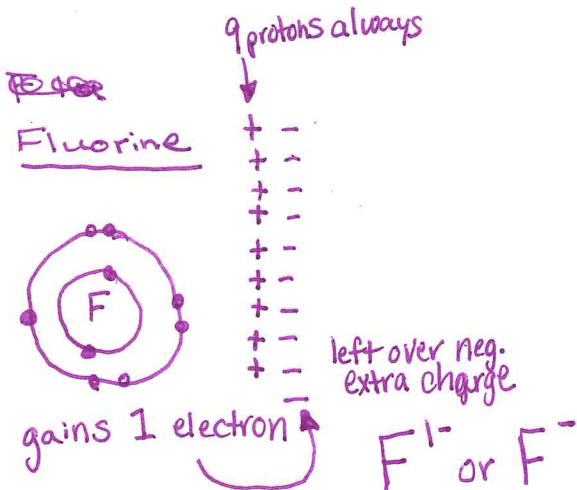 9 protons always
Fluorine
+ -
+ -
+ -
+ -
+ -
+ -
+ -
+ -
+ -
-
F
left over neg.
extra charge
gains 1 electron
F¹⁻ or F⁻